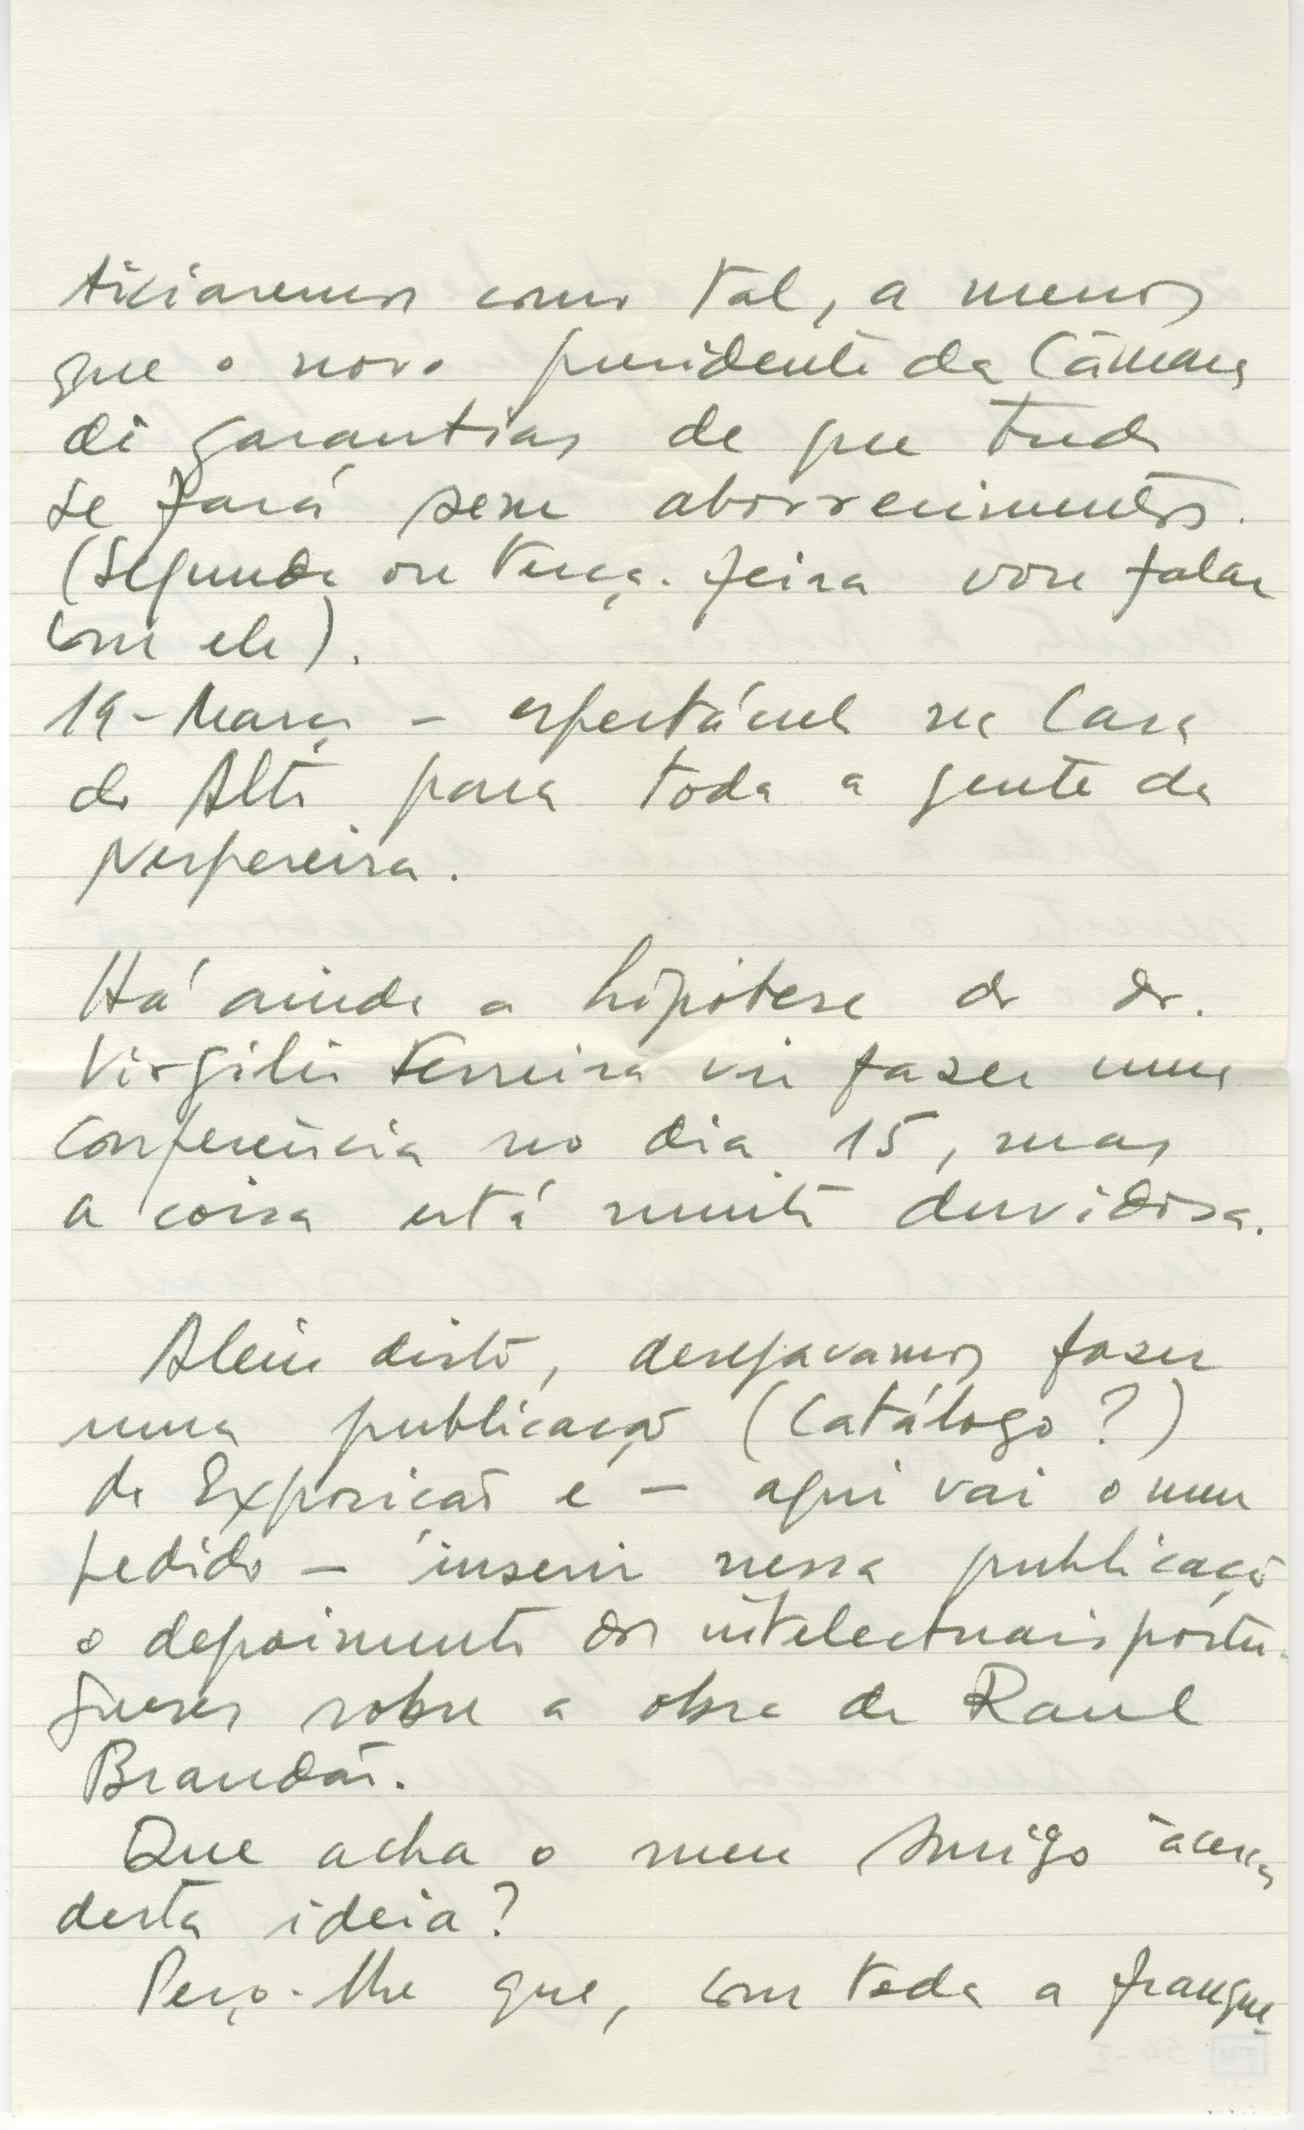 ticiaremos como tal, a menos
que o novo presidente da Câmara
dê garantias de que tudo
se fará sem aborrecimentos.
(Segunda ou terça-feira vou falar
com ele).
19-Março - espectáculo na Casa
do Alto para toda a gente da
Nespereira.
Há ainda a hipótese do dr.
Virgílio Ferreira vir fazer uma
conferência no dia 15, mas
a coisa está muito duvidosa.
Além disto, desejavamos fazer
uma publicação (Catálogo?)
da Exposição e - aqui vai o meu
pedido - inserir nessa publicação
o depoimento dos intelectuais portu-
gueses sobre a obra de Raul
Brandão.
Que acha o meu Amigo àcerca
desta ideia?
Peço-lhe que, com toda a franque-